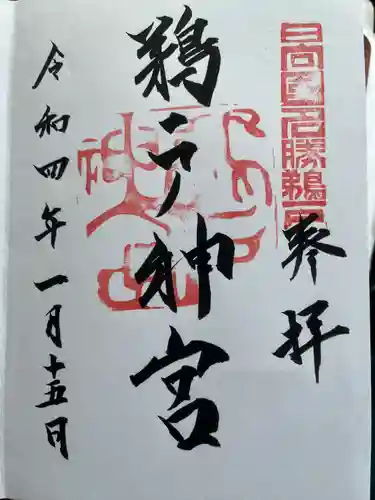 奉拝
日向国名勝鵜戸
鵜戸神宮
令和四年一月十五日